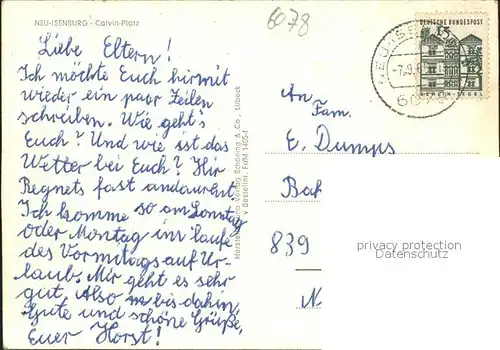 NEU-ISENBURG - Calvin-Platz
6078
Liebe Eltern!
Ich möchte Euch hirmit
wieder ein paar Zeilen
schreiben. Wie geht's
Euch? Und wie ist das
Wetter bei Euch? Hir
Regnets fast andauernt.
Ich komme so am Sonntag
oder Montag im laufe
des Vormittags auf Ur-
laub. Mir geht es sehr
gut. Also bis dahin,
Gute und schöne Grüße,
Euer Horst!
Schöning & Co., Lübeck
DEUTSCHE BUNDESPOST
15
BERLIN-TEGEL
An
Fam.
E. Dumps
Bak
839
N
privacy protection
Datenschutz